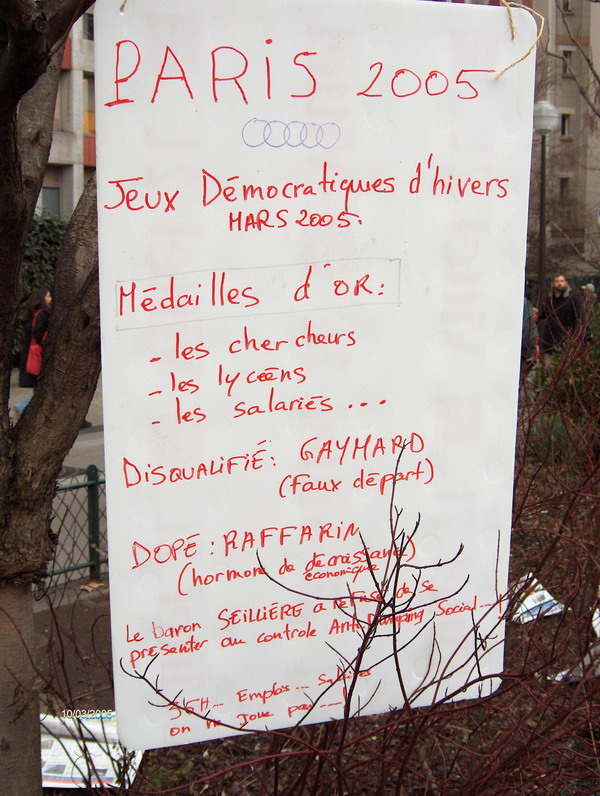 PARIS 2005
Jeux Démocratiques d'hivers
MARS 2005.
Médailles d'OR:
- les chercheurs
- les lycéens
- les salariés ...
DISQUALIFIÉ: GAYMARD
(Faux départ)
DOPÉ : RAFFARIN
(hormone de décroissance)
économique
Le baron SEILLIÈRE a refusé de se
présenter au controle Anti Dumping Social ...!
35H... Emplois... Salaires
on ne joue pas ...!
10/03/2005